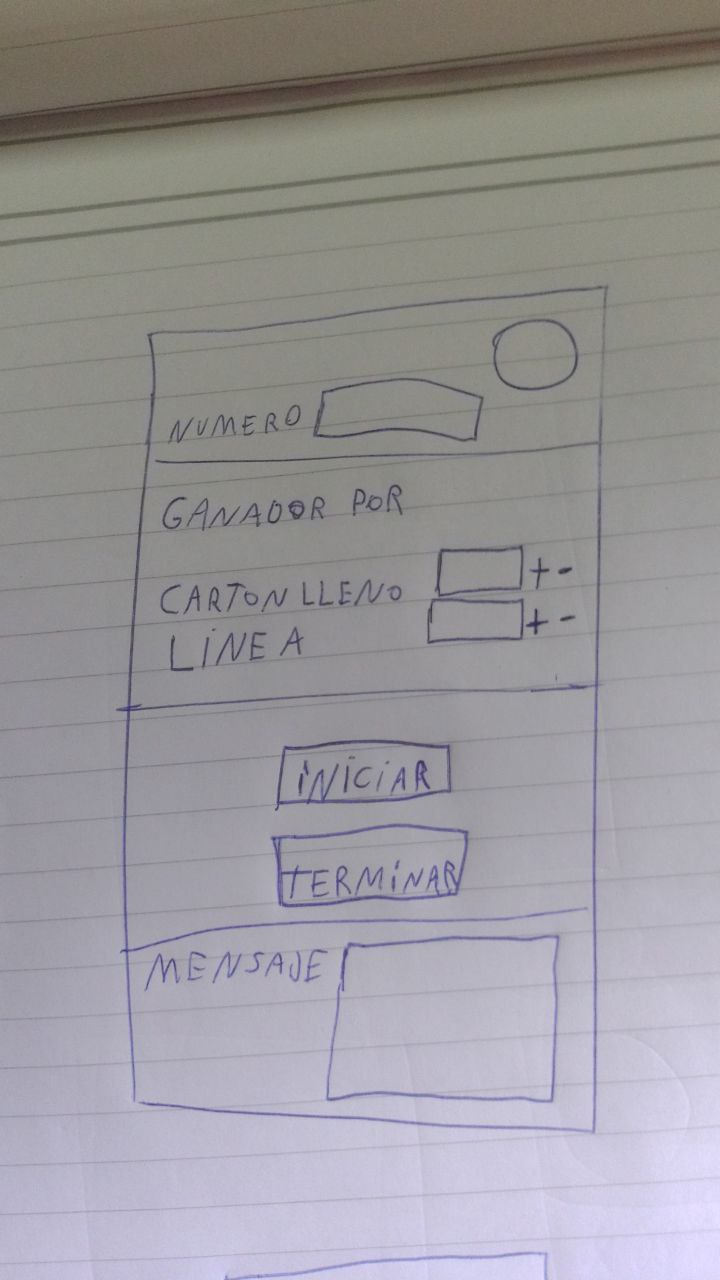 NUMERO
GANADOR POR
CARTON LLENO + -
LINEA + -
INICIAR
TERMINAR
MENSAJE